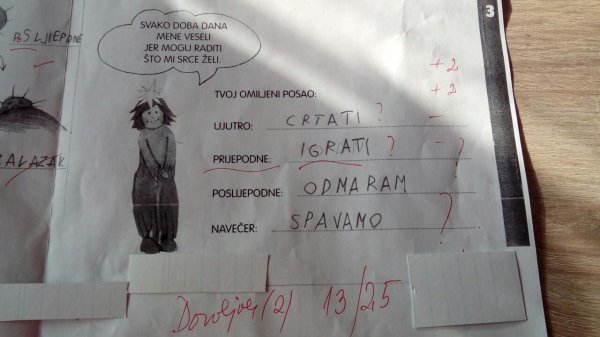 3
POSLIJEPODNE
SVAKO DOBA DANA
MENE VESELI
JER MOGU RADITI
ŠTO MI SRCE ŽELI.
+2
TVOJ OMILJENI POSAO: +2
UJUTRO: CRTATI ? -
PRIJEPODNE: IGRATI ? - ?
POSLIJEPODNE: ODMARAM
NAVEČER: SPAVAMO ?
Dovoljan (2) 13/25